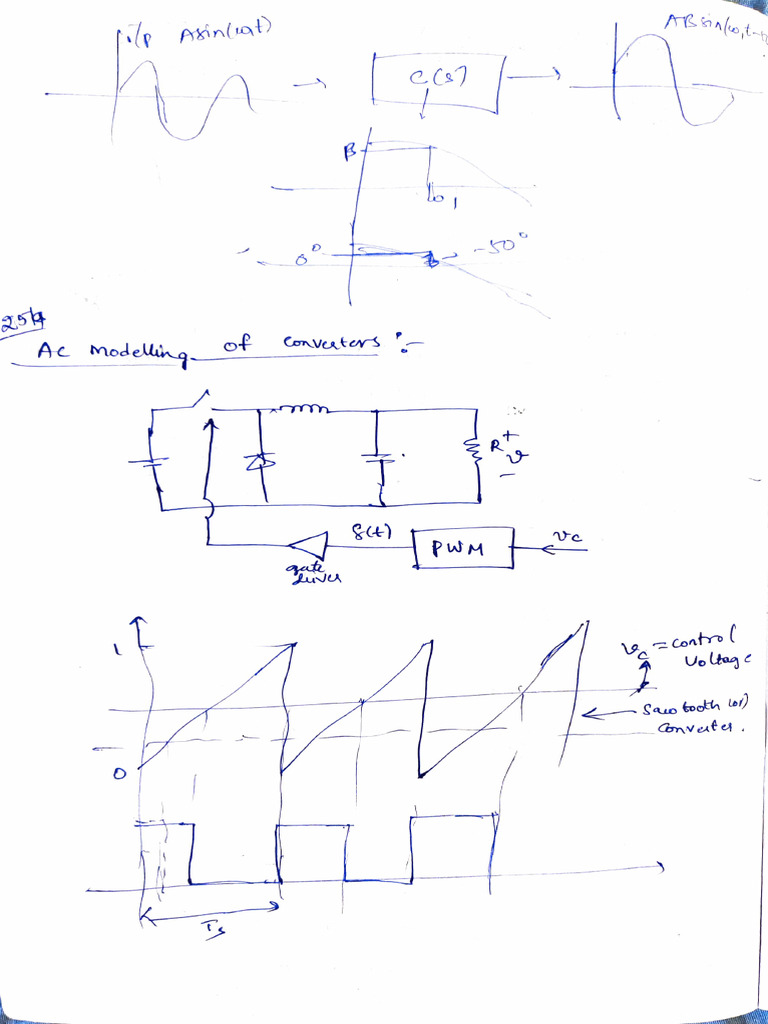 i/p A sin(ω₁t)
AB sin(ω₁t-
C(s)
B
ω₁
0°
-50°
AC modelling of converters :-
R + v -
δ(t)
PWM
vc
gate
driver
1
vc = control
voltage
Sawtooth (or)
Converter.
0
Ts